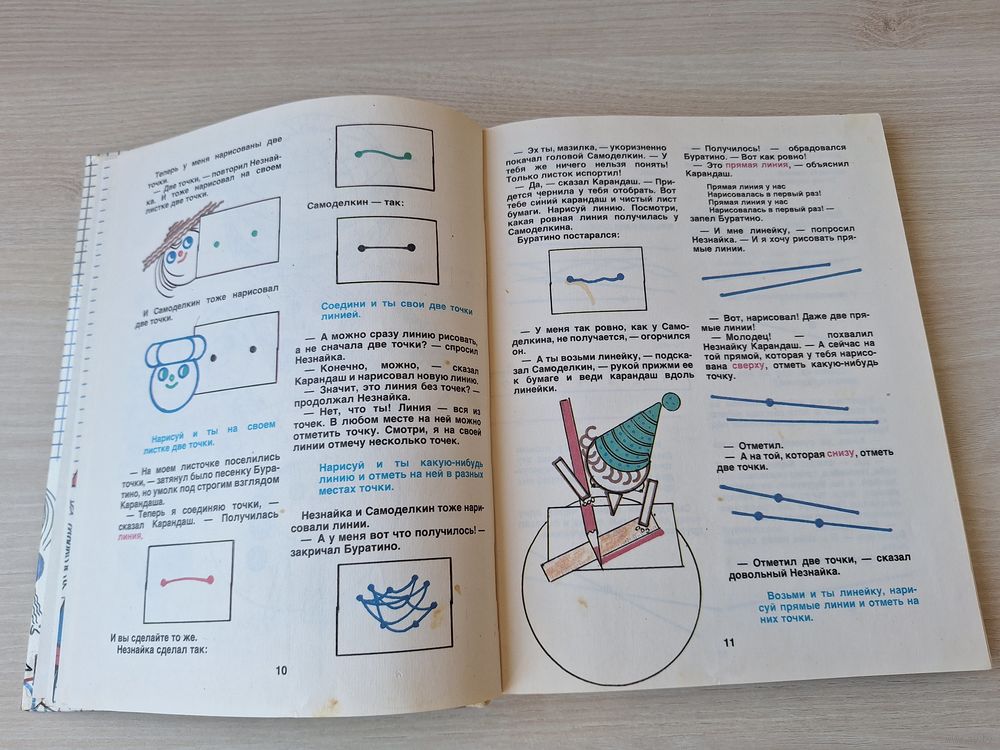 Теперь у меня нарисованы две
точки.
— Две точки, — повторил Незнай-
ка. И тоже нарисовал на своем
листке две точки.
И Самоделкин тоже нарисовал
две точки.
Нарисуй и ты на своем
листке две точки.
— На моем листочке поселились
точки, — затянул было песенку Бура-
тино, но умолк под строгим взглядом
Карандаша.
— Теперь я соединяю точки, —
сказал Карандаш. — Получилась
линия.
И вы сделайте то же.
Незнайка сделал так:
Самоделкин — так:
Соедини и ты свои две точки
линией.
— А можно сразу линию рисовать,
а не сначала две точки? — спросил
Незнайка.
— Конечно, можно, — сказал
Карандаш и нарисовал новую линию.
— Значит, это линия без точек? —
продолжал Незнайка.
— Нет, что ты! Линия — вся из
точек. В любом месте на ней можно
отметить точку. Смотри, я на своей
линии отмечу несколько точек.
Нарисуй и ты какую-нибудь
линию и отметь на ней в разных
местах точки.
Незнайка и Самоделкин тоже нари-
совали линии.
— А у меня вот что получилось! —
закричал Буратино.
10
— Эх ты, мазилка, — укоризненно
покачал головой Самоделкин. — У
тебя же ничего нельзя понять!
Только листок испортил!
— Да, — сказал Карандаш. — При-
дется чернила у тебя отобрать. Вот
тебе синий карандаш и чистый лист
бумаги. Нарисуй линию. Посмотри,
какая ровная линия получилась у
Самоделкина.
Буратино постарался:
— У меня так ровно, как у Само-
делкина, не получается, — огорчился
он.
— А ты возьми линейку, — подска-
зал Самоделкин, — рукой прижми ее
к бумаге и веди карандаш вдоль
линейки.
— Получилось! — обрадовался
Буратино. — Вот как ровно!
— Это прямая линия, — объяснил
Карандаш.
Прямая линия у нас
Нарисовалась в первый раз!
Прямая линия у нас
Нарисовалась в первый раз! —
запел Буратино.
— И мне линейку, — попросил
Незнайка. — И я хочу рисовать пря-
мые линии.
— Вот, нарисовал! Даже две пря-
мые линии!
— Молодец! — похвалил
Незнайку Карандаш. — А сейчас на
той прямой, которая у тебя нарисо-
вана сверху, отметь какую-нибудь
точку.
— Отметил.
— А на той, которая снизу, отметь
две точки.
— Отметил две точки, — сказал
довольный Незнайка.
Возьми и ты линейку, нари-
суй прямые линии и отметь на
них точки.
11